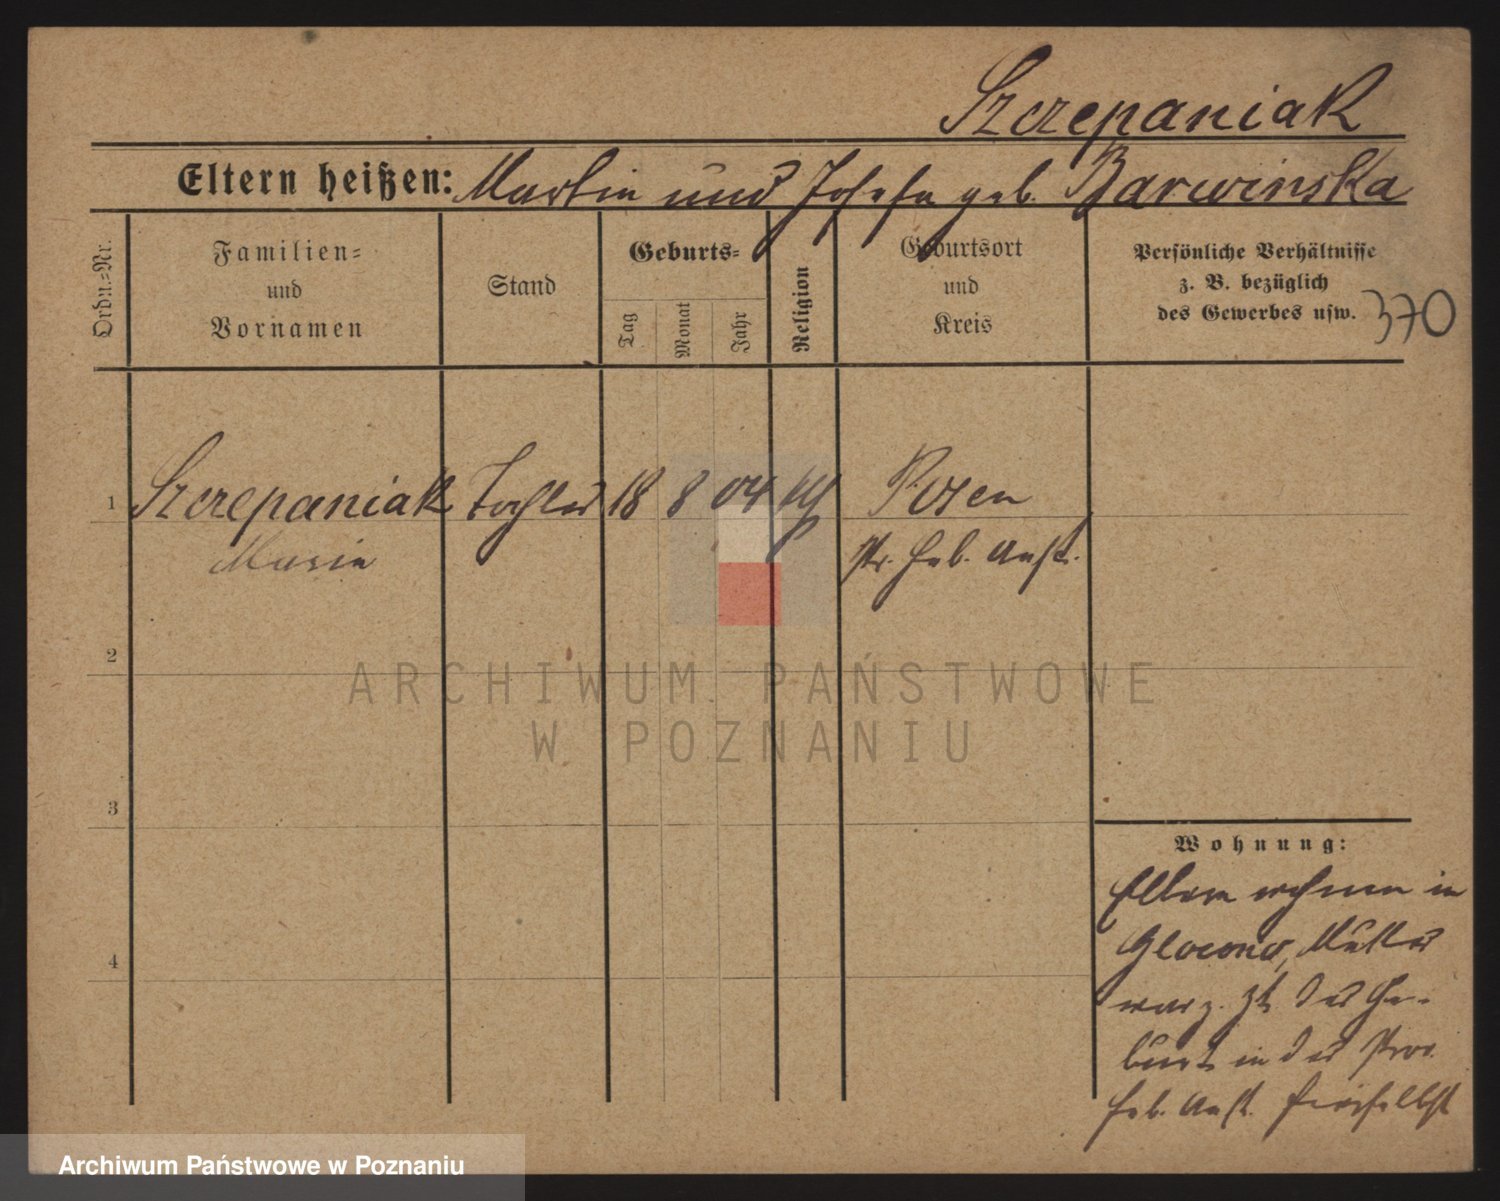 Szczepaniak
Eltern heißen: Martin und Josefa geb. Barwinska
Ordn.-Nr.
Familien-
und
Vornamen
Stand
Geburts-
Tag
Monat
Jahr
Religion
Geburtsort
und
Kreis
Persönliche Verhältnisse
z. B. bezüglich
des Gewerbes usw.
370
1 Szczepaniak Tochter 18 8 04 Posen
Marie Pr. Heb. Anst.
2
ARCHIWUM PAŃSTWOWE
W POZNANIU
3
Wohnung:
Eltern wohnen in
Mutter
4
war z. Zt. der Ge-
burt in der Prov.
Heb. Anst. hierselbst
Archiwum Państwowe w Poznaniu